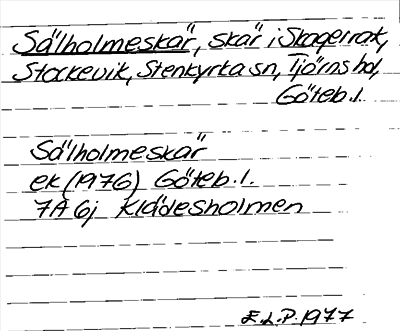 Sälholmeskär, skär i Skagerrak,
Stockevik, Stenkyrka sn, Tjörns hd,
Göteb. l.
Sälholmeskär
ek (1976) Göteb. l.
7A 6j Klädesholmen
E.L.P. 1977